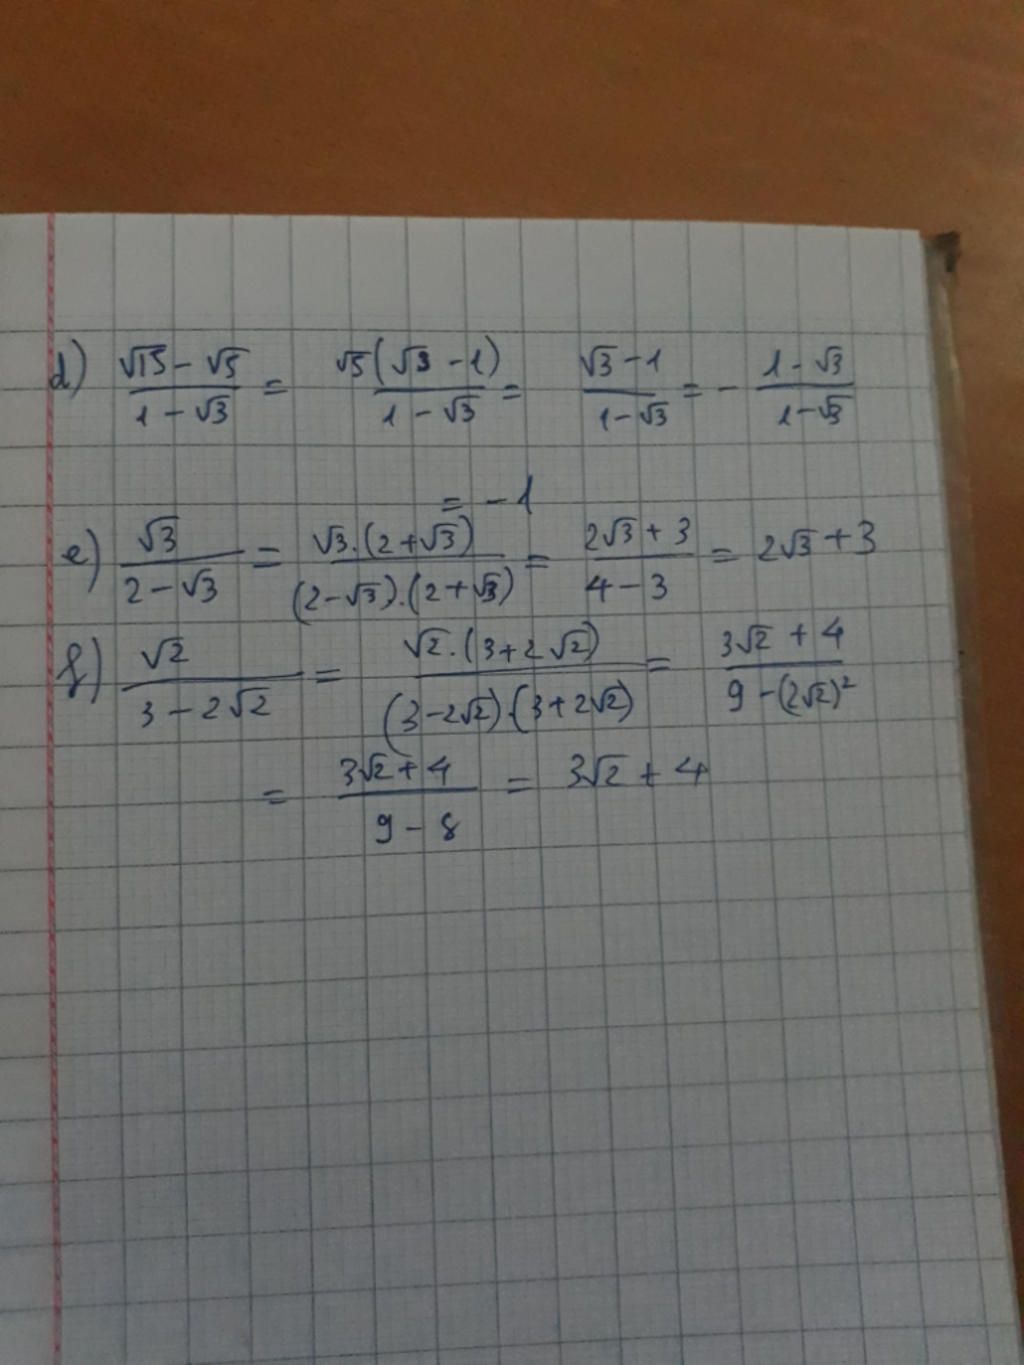 d) (√15 - √5)/(1 - √3) = √5(√3 - 1)/(1 - √3) = (√3 - 1)/(1 - √3) = - (1 - √3)/(1 - √3)
= -1
e) √3/(2 - √3) = √3.(2 + √3)/((2 - √3).(2 + √3)) = (2√3 + 3)/(4 - 3) = 2√3 + 3
f) √2/(3 - 2√2) = √2.(3 + 2√2)/((3 - 2√2).(3 + 2√2)) = (3√2 + 4)/(9 - (2√2)²)
= (3√2 + 4)/(9 - 8) = 3√2 + 4